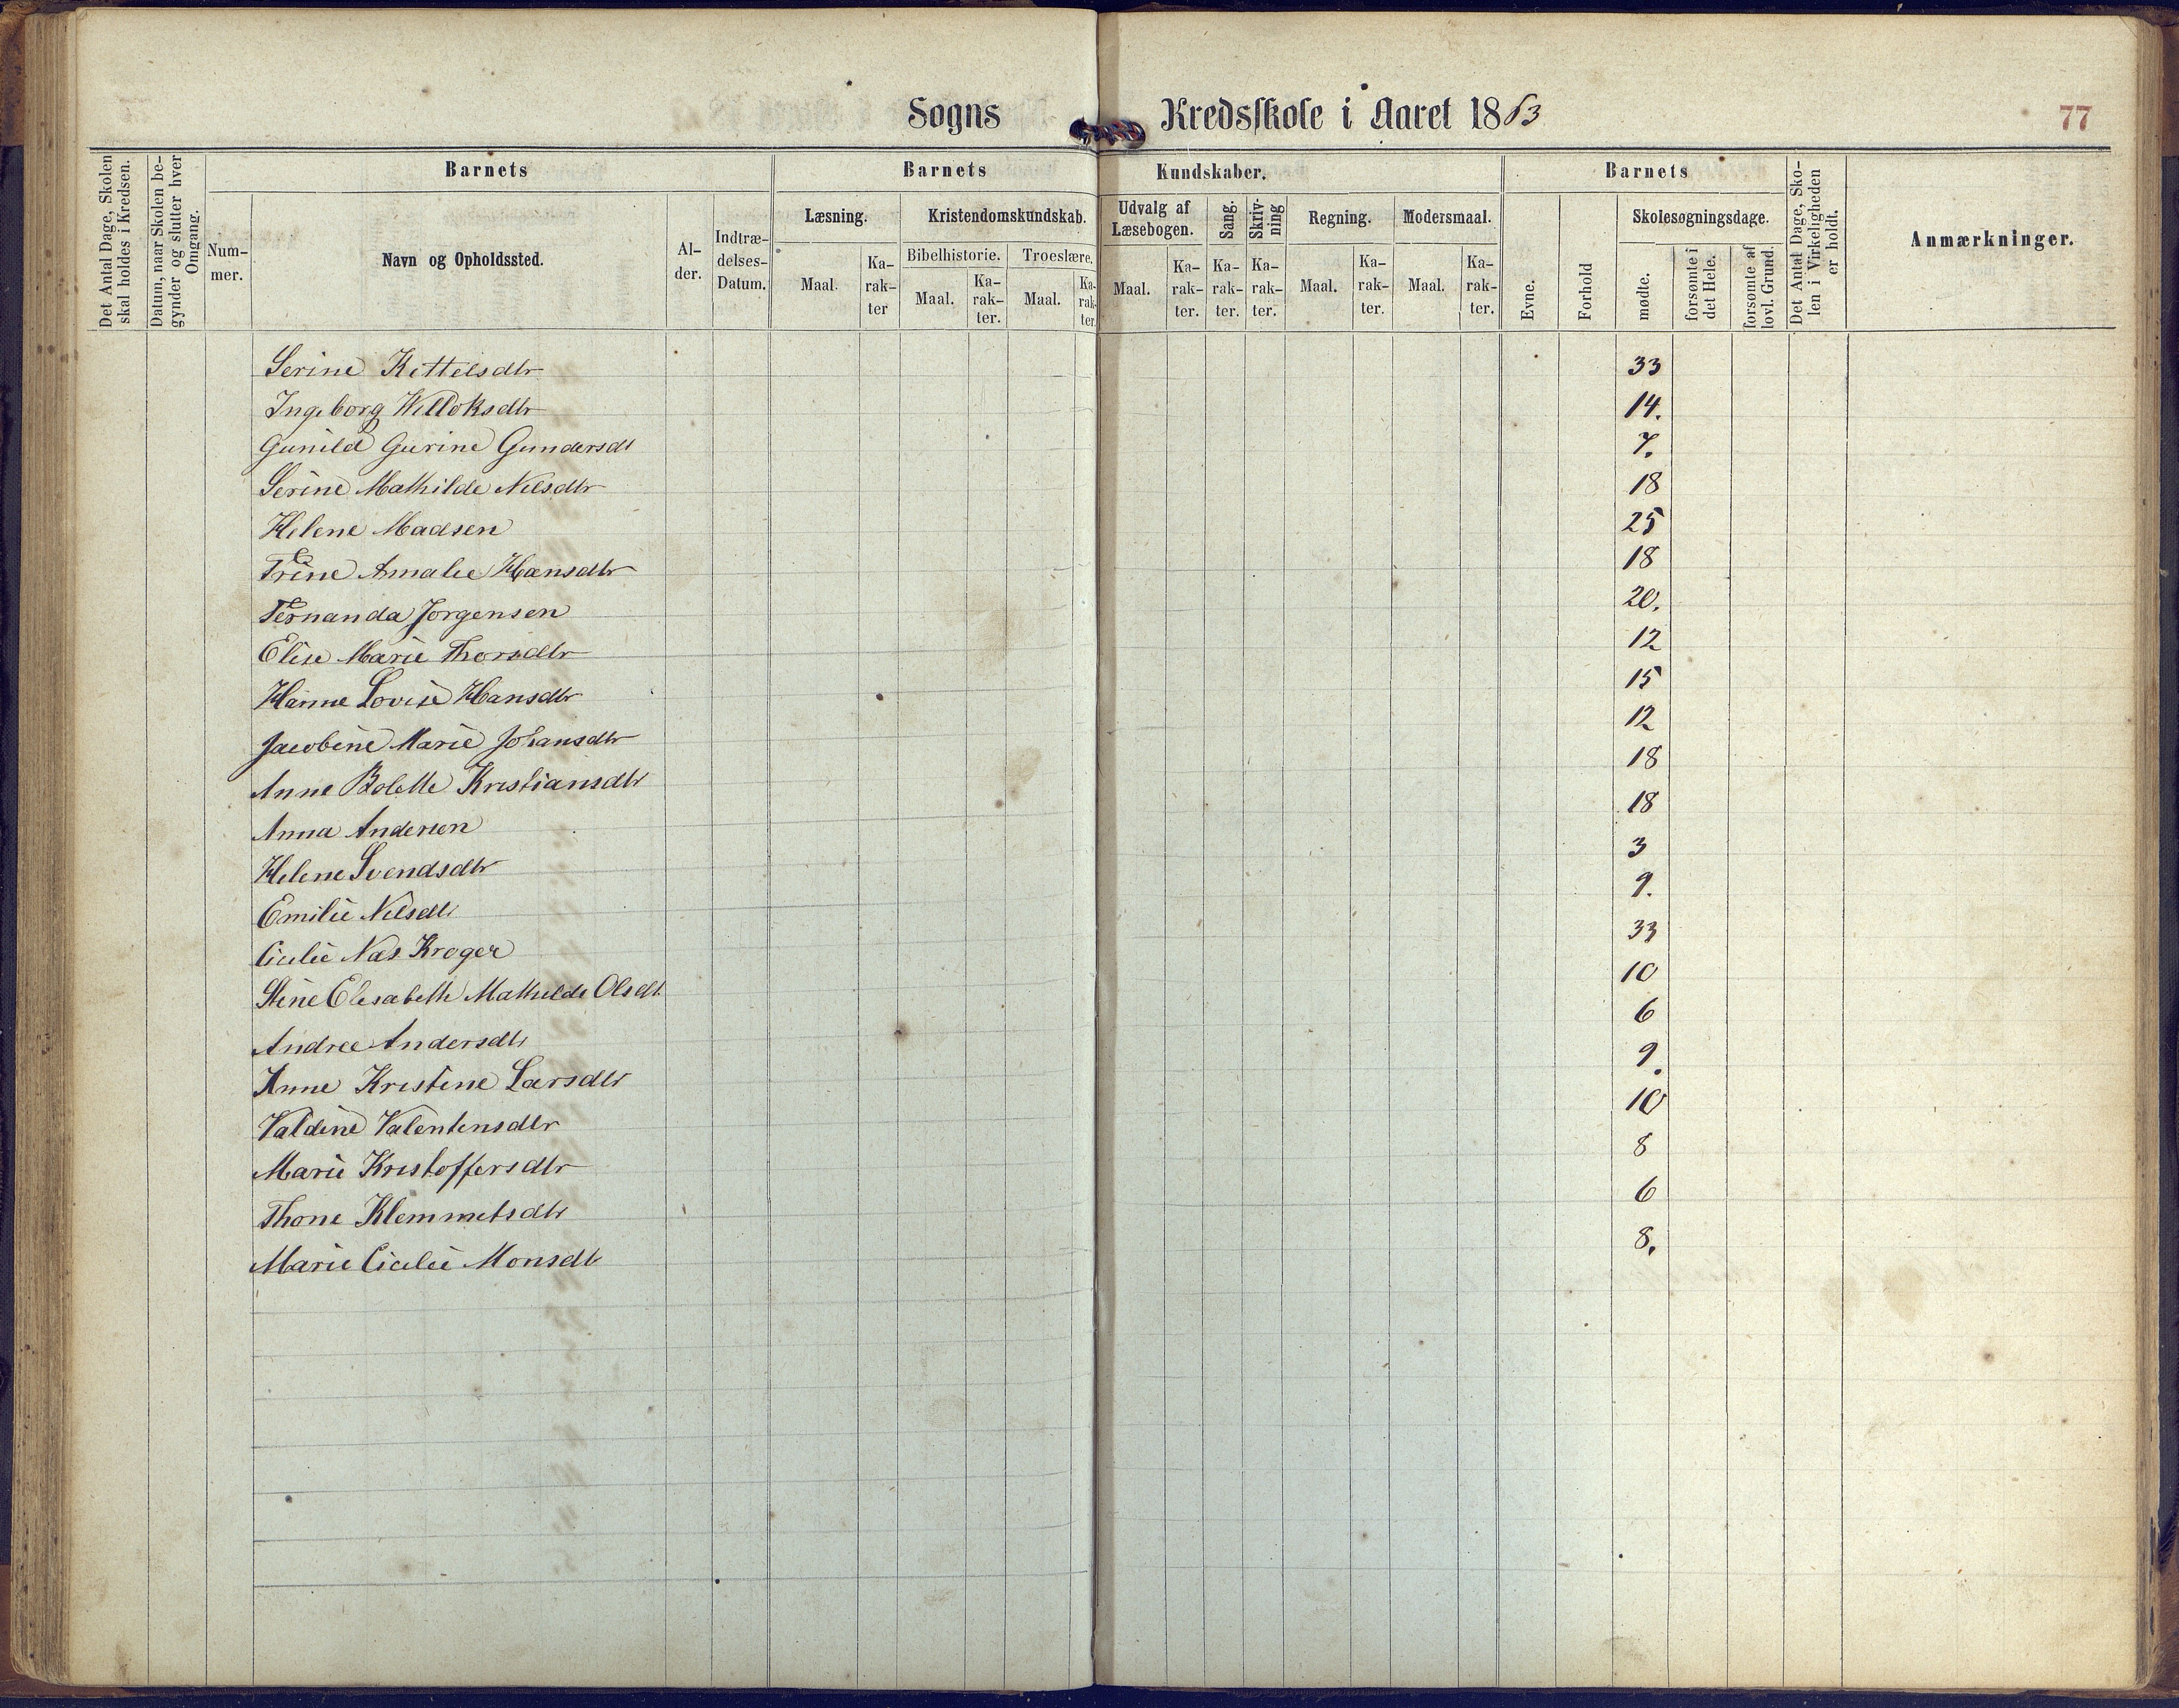 Sogns Kredsskole i Aaret 1863
77
Det Antal Dage, Skolen skal holdes i Kredsen.
Datum, naar Skolen begynder og slutter hver Omgang.
Barnets
Nummer.
Navn og Opholdssted.
Alder.
Indtrædelses-Datum.
Barnets Kundskaber.
Læsning.
Maal.
Karakter
Kristendomskundskab.
Bibelhistorie.
Maal.
Karakter.
Troeslære.
Maal.
Karakter.
Udvalg af Læsebogen.
Maal.
Karakter.
Sang.
Karakter.
Skrivning
Karakter.
Regning.
Maal.
Karakter.
Modersmaal.
Maal.
Karakter.
Barnets
Evne.
Forhold
Skolesøgningsdage.
mødte.
forsømte i det Hele.
forsømte af lovl. Grund.
Det Antal Dage, Skolen i Virkeligheden er holdt.
Anmærkninger.
Serine Kittelsdtr 33
Ingeborg Willoksdtr 14.
Gunild Gurine Gundersdt 7.
Serine Mathilde Nilsdtr 18
Helene Madsen 25
Trine Amalie Hansdtr 18
Fernanda Jorgensen 20.
Elise Marie Thorsdtr 12
Hanne Lovise Hansdtr 15
Jacobine Marie Johansdtr 12
Anne Bolette Kristiansdtr 18
Anna Andersen 18
Helene Svendsdtr 3
Emilie Nilsdtr 9.
Cicilie Næs Kroger 33
Stine Elisabeth Mathilde Olsdt. 10
Andree Andersdtr 6
Anne Kristine Larsdtr 9.
Valdine Valentinsdtr 10
Marie Kristoffersdtr 8
Thone Klemmetsdtr 6
Marie Cicilie Monsdtr 8.